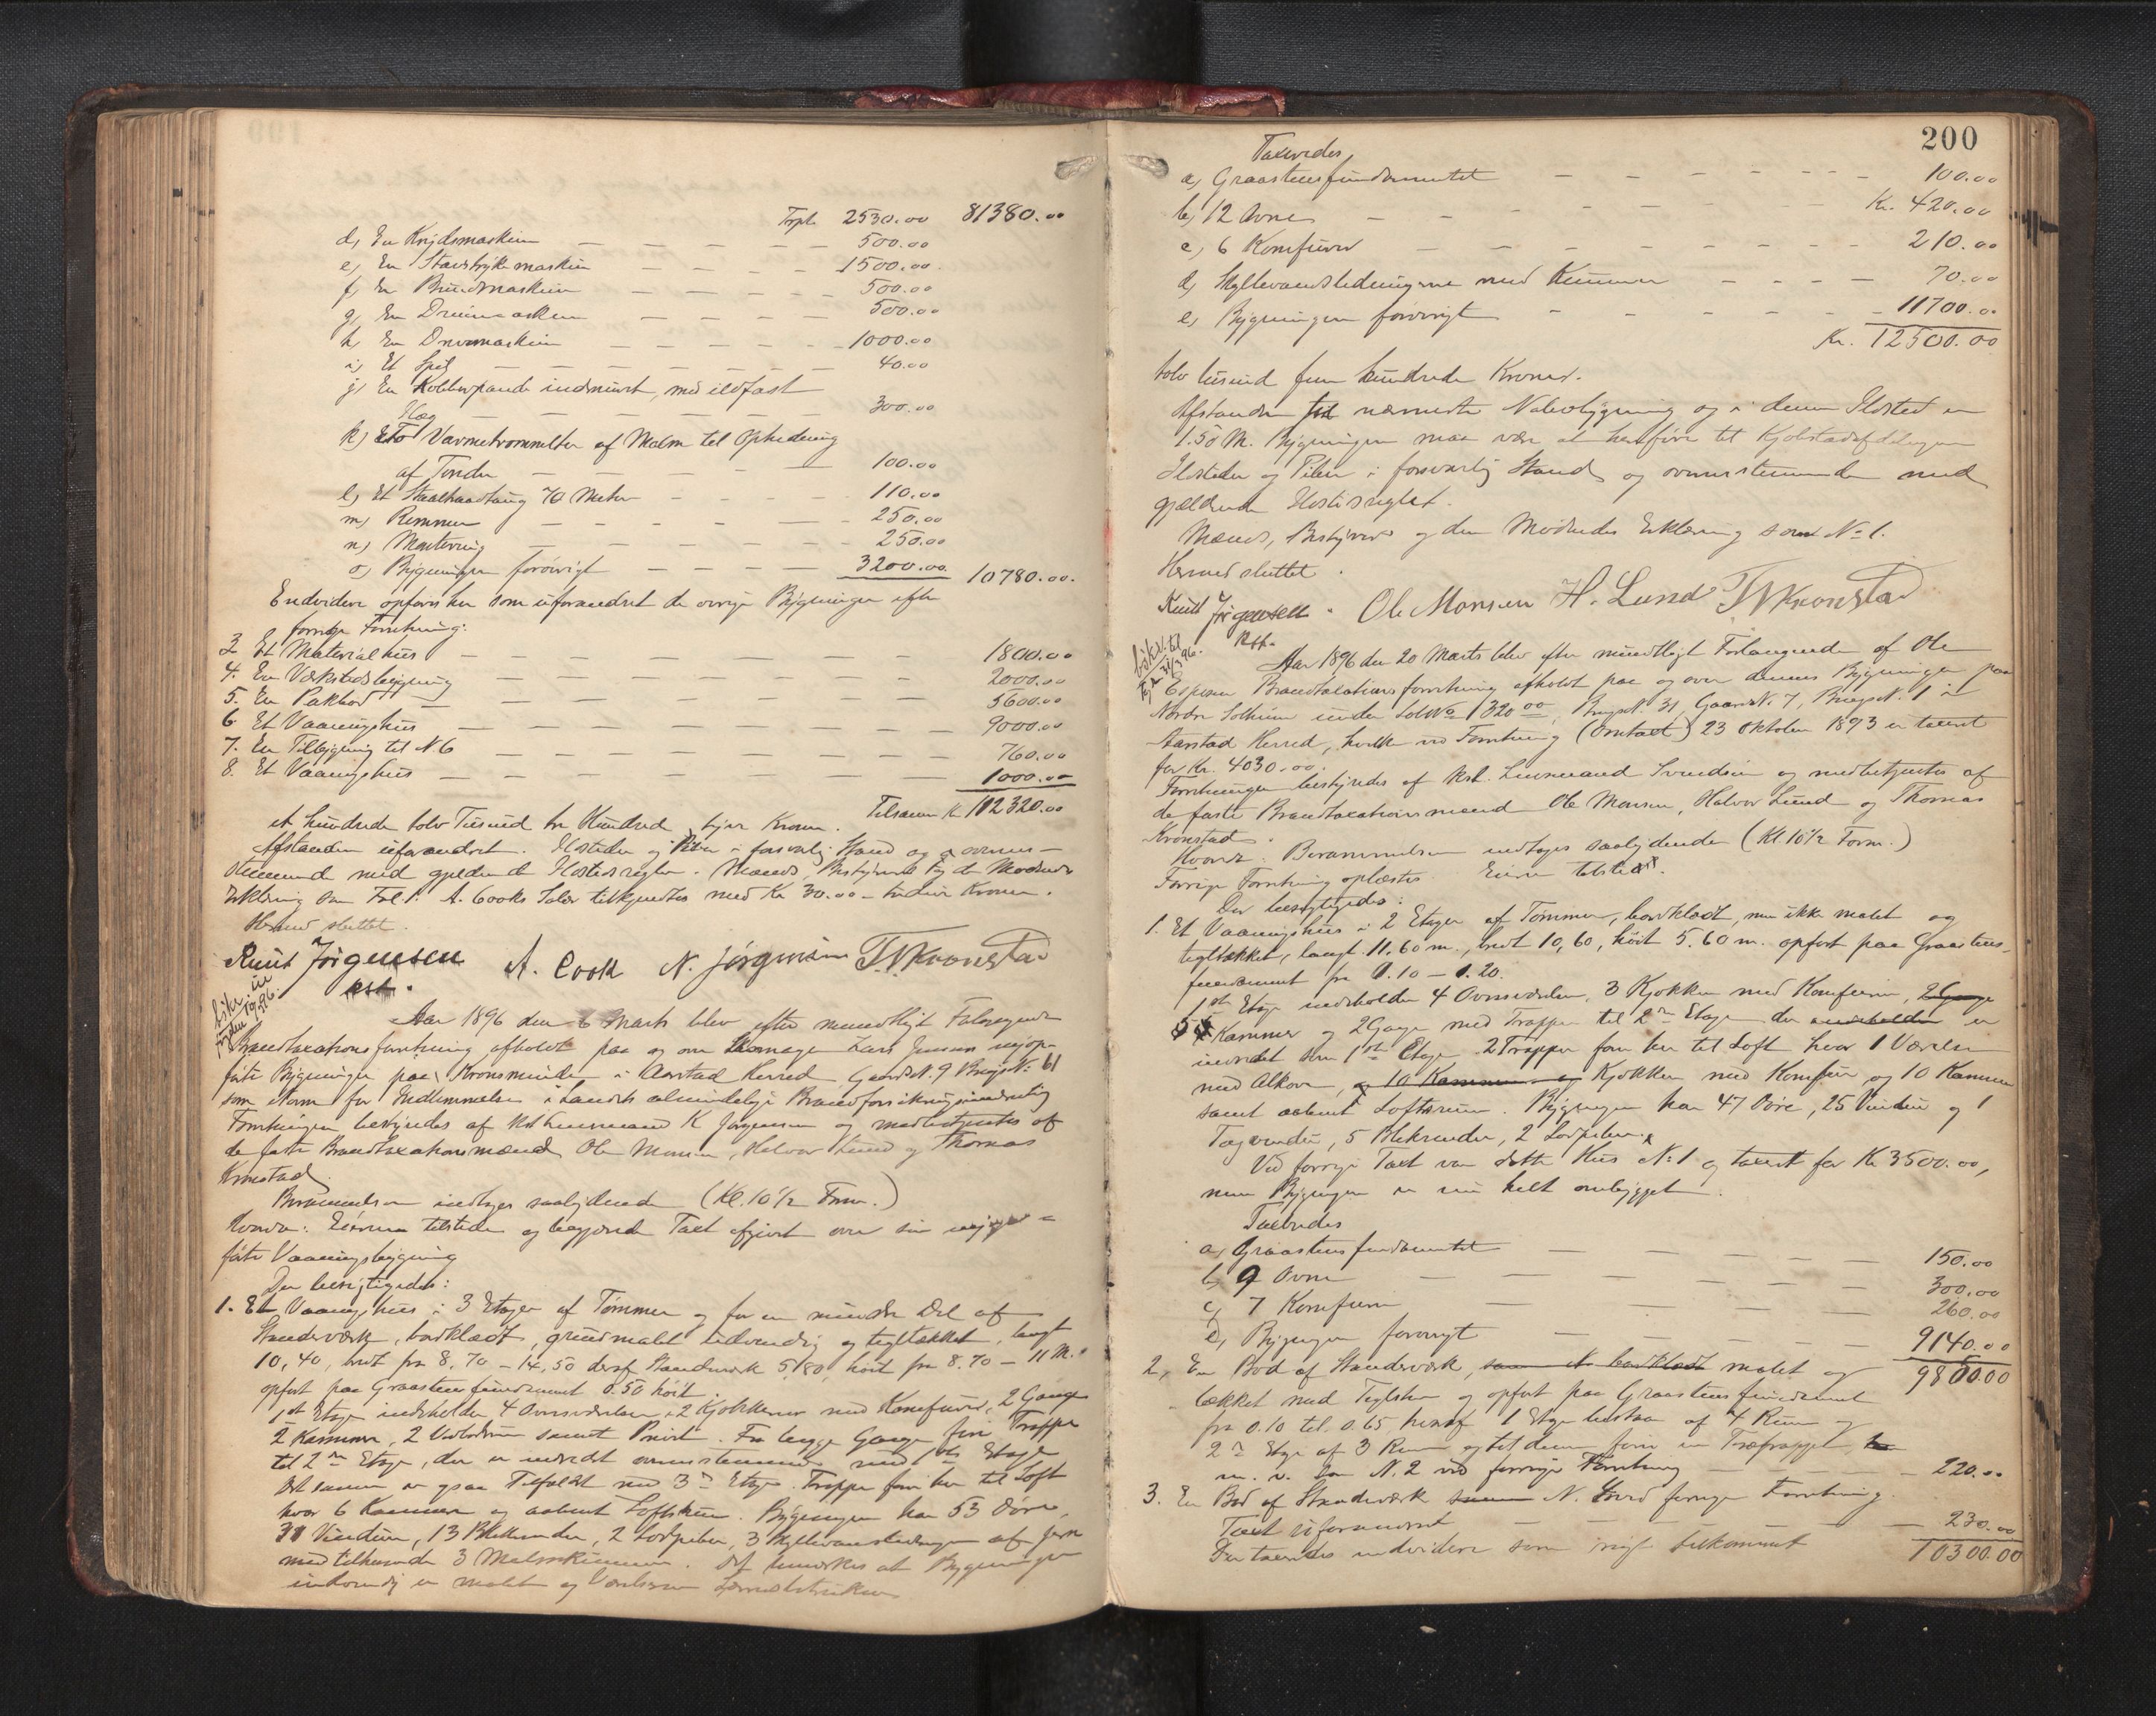 Trpt. 2530.00 81380.00
d, En Krydsmaskin — — — — 500.00
e, En Stavstryke maskin — — — — 1500.00
f, En Bundmaskin — — — — 500.00
g, En Dreiemaskin — — — — 500.00
h, En Drivmaskin — — — — 1000.00
i, Et Spil — — — — 40.00
j, En Kobberpande indmuret, med ildfast
Hæg — — — — 300.00
k, To Varmetrommeler af Malm til Ophedning
af Tønder — — — — 100.00
l, Et Staaltraadtaug 70 Meter — — — 110.00
m, Remmer — — — — 250.00
n, Montering — — — — 250.00
o, Bygningen forøvrigt — — — — 3200.00 10780.00.
Endvidere opføres her som uforandret de øvrige Bygninger efter
forrige Forretning:
3 Et Materialhus — — — — 1800.00
4. En Værkstedsbygning — — — — 2000.00
5. En Pakbod — — — — 5600.00
6 Et Vaaningshus — — — — 9000.00
7. En Tilbygning til N 6 — — — — 760.00
8. Et Vaaningshus — — — — 1000.00
Tilsammen Kr 112320.00
et hundrede tolv Tusind tre Hundred tyve Kroner.
Afstanden uforandret. Ildsteder og Piber i forsvarlig Stand og overens-
stemmende med gjeldende Ildstedsregler. Mænds, Bestyrers og de Mødendes
Erklæring som Fol 1. A. Cooks Salær tilkjendtes med Kr 30.00 – tredive Kroner.
Hermed sluttet.
Knut Jørgensen A. Cook N. Jørgensen T. N. Kronstad
kst.
Aar 1896 den 6 Marts blev efter mundtligt Forlangende
Brandtaxationsforretning afholdt paa og over Skomager Lars Jensens nyop-
førte Bygninger paa Kronsminde i Aarstad Herred Gaards N. 9 Brugs N: 61
som for Indlemmelse i Landets almindelige Brandforsikringsindretning
Forretningen bestyredes af kst Lensmand K Jørgensen og medbetjentes af
de faste Brandtaxationsmænd Ole Monsen, Halvor Lund og Thomas
Kronstad
Berammelsen indtages saalydende (Kl. 10 1/2 Form.)
Hvorda: Eieren tilstede og begjærede Taxt afgivet over sin nyop-
førte Vaaningsbygning
Der besigtigedes:
1. Et Vaaningshus i 3 Etager af Tømmer og for en mindre Del af
Standerværk, bordklædt, grundmalet udvendig og tegltækket, langt
10,40, bredt fra 8,70 – 14,50 deraf Standerværk 5,80, høit fra 8.70 – 11 M.
opført paa Graastensfundament 0.50 høit.
1st Etage indeholder 4 Ovnsværelser, 2 Kjøkkener med Komfurer, 2 Gange
2 Kammere, 2 samt Privet. Fra begge Gange fører Trapper
til 2en Etage, der er indredet overensstemmende med 1ste Etage
Det samme er ogsaa Tilfældet med 3e Etage. Trapper fører her til Loft
hvor 6 Kammere og aabent Loftsrum. Bygningen har 53 Døre,
31 Vinduer, 13 Blikrender, 2 Lodpiber, 3 Skyllevandsledninger af Jern
med tilhørende 3 Metalskummer. Det bemærkes at Bygningen
indvendig er malet og Værelserne
200
Taxeredes
a, Graastensfundamentet — — — — 100.00
b, 12 Ovne — — — — Kr. 420.00
c, 6 Komfurer — — — — 210.00
d, Skyllevandsledningerne med Kummer — — — — 70.00
e, Bygningen forøvrigt — — — — 11700.00
Kr. 12500.00
tolv tusind fem hundrede Kroner.
Afstanden til nærmeste Nabobygning og i denne Ildsted er
1.50 M. Bygningen maa være at henføre til Kjøbstadafdelingen
Ildsteder og Piber i forsvarlig Stand og overensstemmende med
gjældende Ildstedsregler.
Mænds, Bestyrers og den Mødendes Erklæring som No 1.
Hermed sluttet.
Knut Jørgensen. Ole Monsen H. Lund T N Kronstad
kst.
Aar 1896 den 20 Marts blev efter mundtligt Forlangende af Ole
Espesen Brandtaxationsforretning afholdt paa og over dennes Bygninger paa
Nordre Solheim under LoNo 1320 00, Brugs N. 31, Gaards N. 7, Brugs N. 1 i
Aarstad Herred, hvilke ved Forretning (Omtaxt) 23 Oktober 1893 er taxeret
for Kr. 4030.00.
Forretningen bestyredes af kst. Lensmand Svendsen og medbetjentes af
de faste Brandtaxationsmænd Ole Monsen, Halvor Lund og Thomas
Kronstad.
Hvorda: Berammelsen indtages saalydende (Kl. 10 1/2 Form.)
Forrige Forretning oplæstes. Eieren tilstede.
Der besigtigedes:
1. Et Vaaningshus i 2 Etager af Tømmer, bordklædt, men ikke malet og
tegltækket, langt 11.60 m., bredt 10,60, høit 5.60 m. opført paa Graastens-
fundament fra 0.10 – 1.20.
1ste Etage indeholder 4 Ovnsværelser, 3 Kjøkken med Komfurer, 2 Gange
5 Kammer og 2 Gange med Trapper til 2en Etage der indeholder er
indredet som 1ste Etage. 2 Trapper fører her til Loft hvor 1 Værelse
med Alkove, og 10 Kammere og Kjøkken med Komfur og 10 Kammer
samt aabent Loftsrum. Bygningen har 47 Døre, 25 Vinduer og 1
Tagvindue, 5 Blikrender, 2 Lodpiber.
Ved forrige Taxt var dette Hus N: 1 og taxeret for Kr 3500.00,
men Bygningen er nu helt ombygget.
Taxeredes
a, Graastensfundamentet — — — — 150.00
b, 9 Ovne — — — — 300.00
c, 7 Komfurer — — — — 260.00
d, Bygningen forøvrigt — — — — 9140.00
2, En Bod af Standerværk, bordklædt malet og 9850.00
tækket med Tegelsten og opført paa Graastensfundament
fra 0.10 til 0.65 hvoraf 1 Etage bestaar af 4 Rum og
2n Etage af 3 Rum og til denne fører en Trætrappe
m. v. som N. 2 ved forrige Forretning — — 220.00
3. En Bod af Standerværk N. 3 ved forrige Forretning
Taxt uforandret — — — — 230.00
Der taxeredes endvidere som nyt tilkommet 10300.00